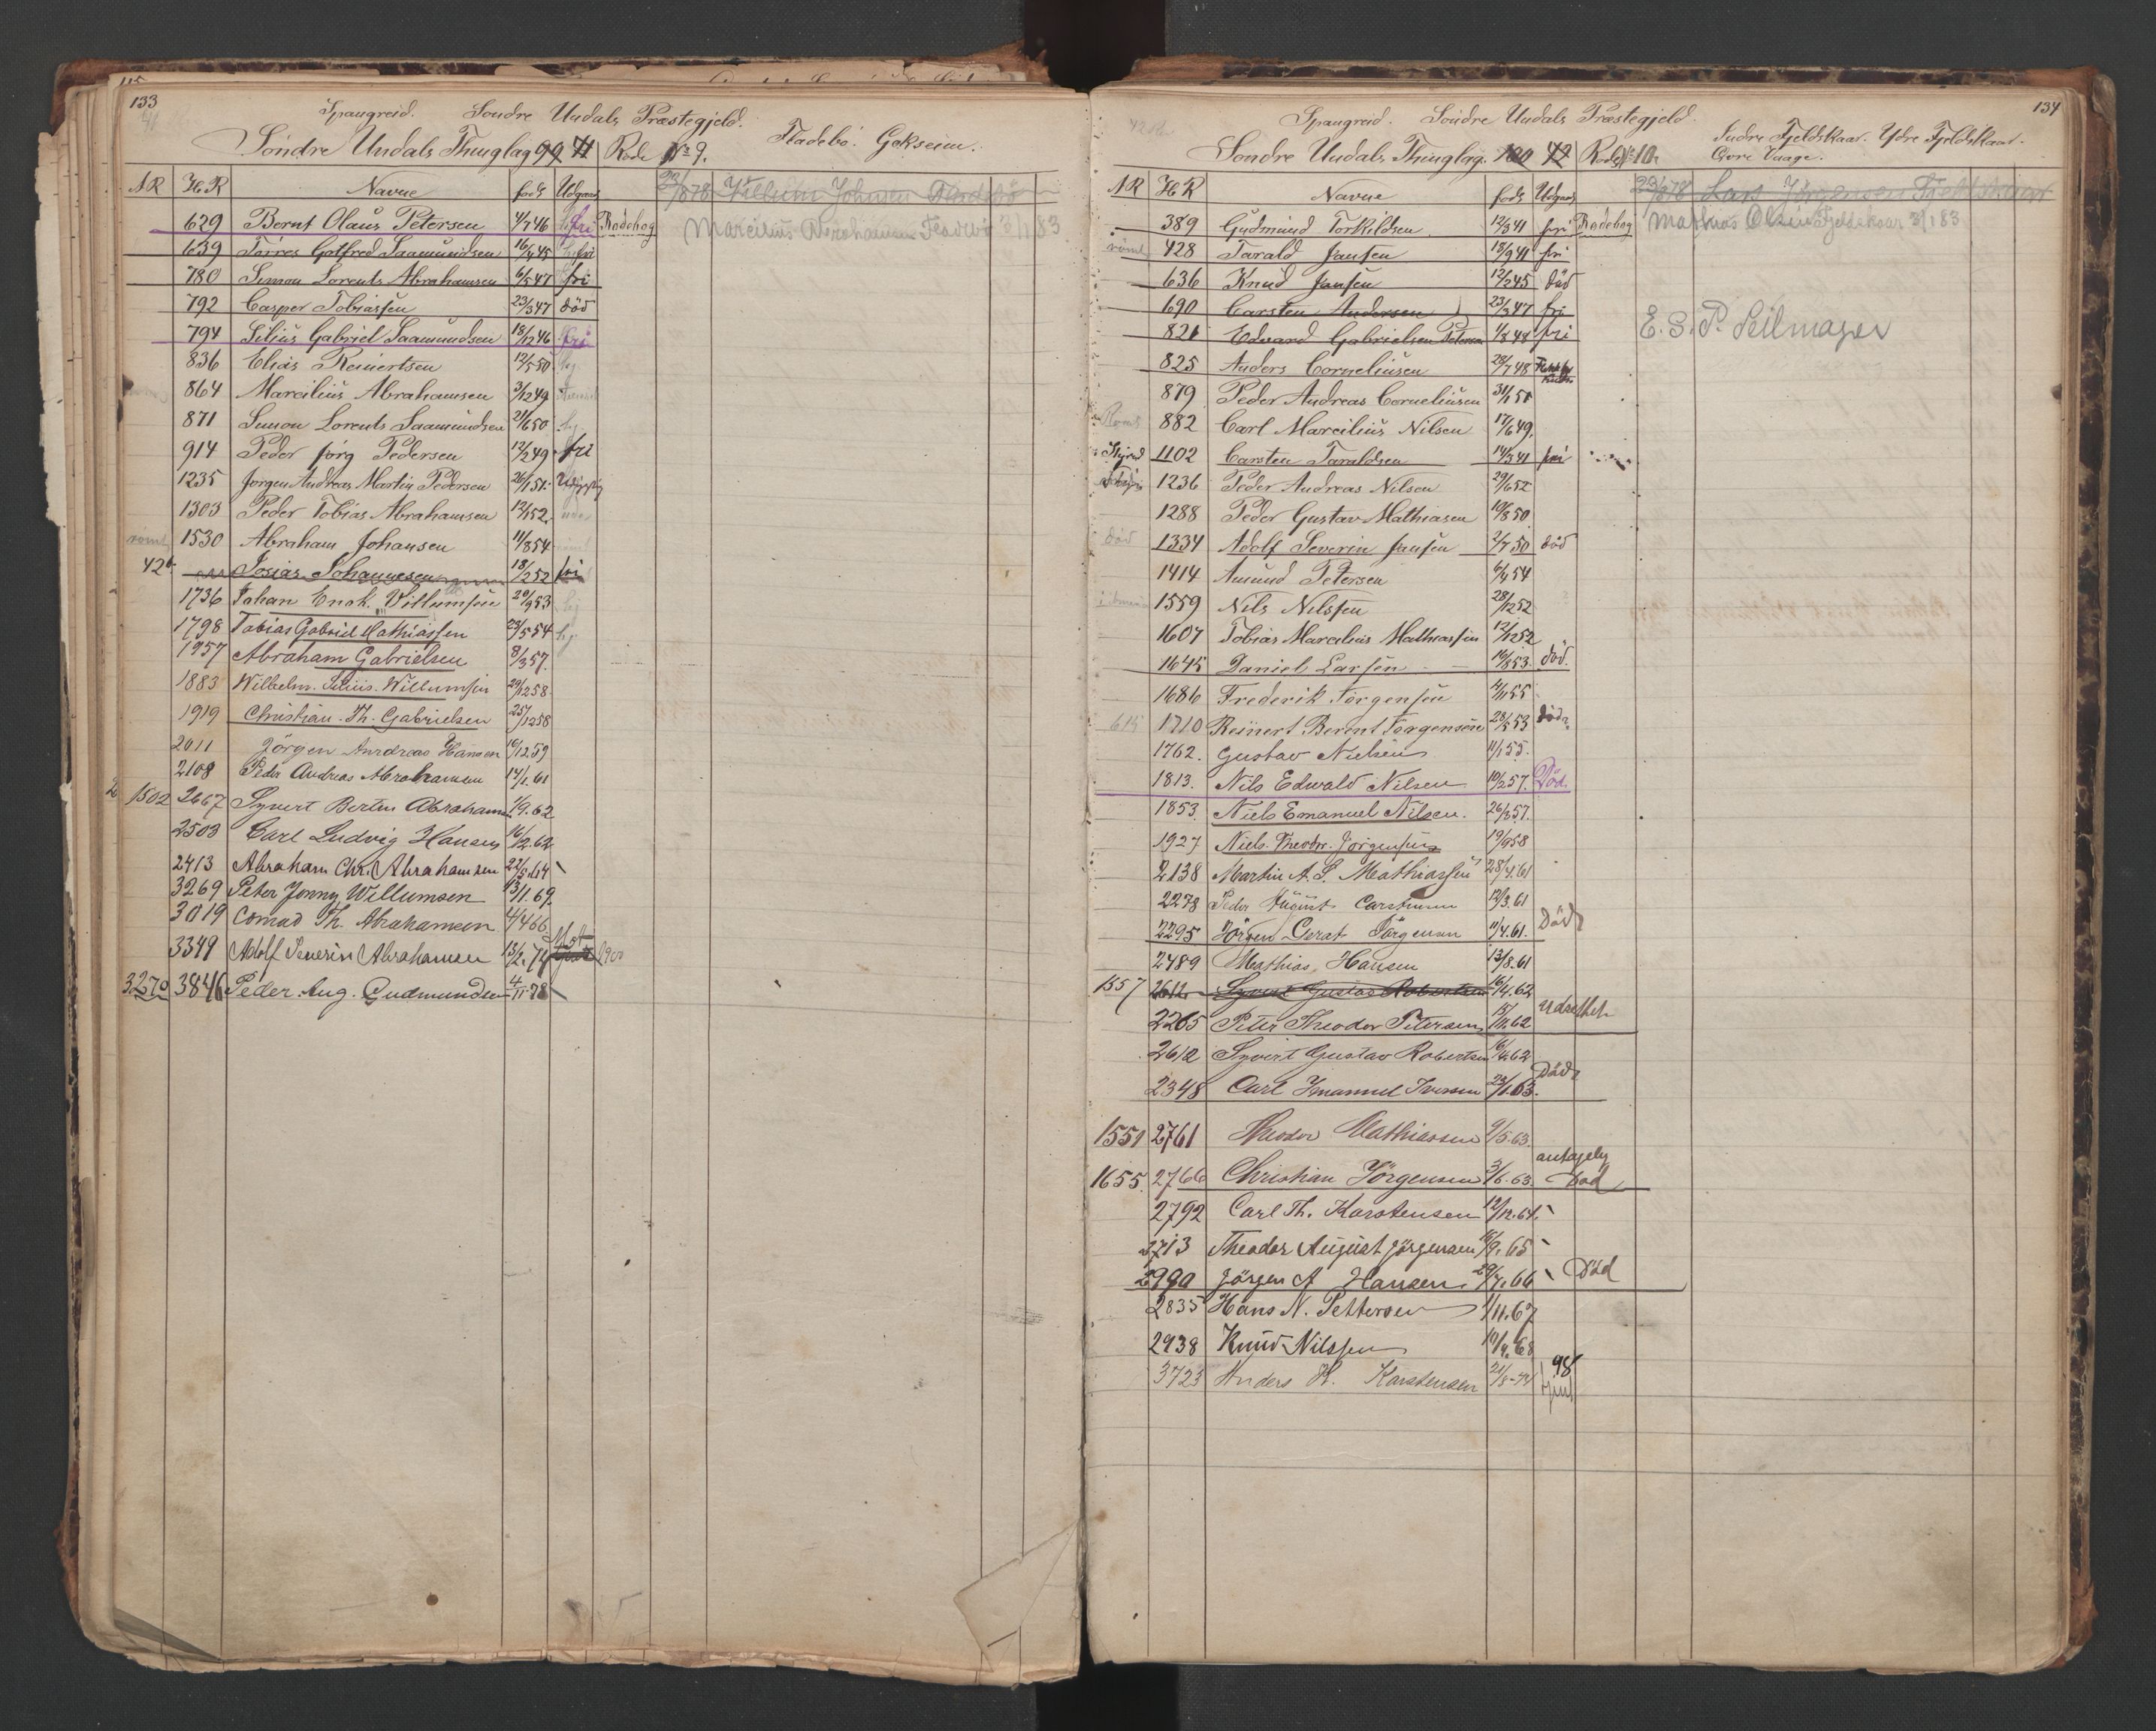 133
Spangreid. Søndre Undals Præstegjeld.
Søndre Undals Thinglag 99 41 Rode No 9. Fladebö. Gokseim.
AR HR Navne föds Udgaaed
23/1878 Willum Johnsen Fladebö
629 Bernt Olaus Petersen 4/7 46 fri Rodebog
Marcilius Abrahamsen Fladebö 3/1 83
639 Torres Gotfred Saamundsen 16/4 45 fri
780 Simon Lorents Abrahamsen 6/5 47 fri
792 Casper Tobiassen 23/3 47 död
794 Silius Gabriel Saamundsen 18/12 46 fri
836 Elias Reinertsen 12/5 50
864 Marcilius Abrahamsen 3/12 49
871 Simon Lorents Saamundsen 21/6 50
914 Peder Jörg Pedersen 12/2 49 fri
1235 Jörgen Andreas Martin Pedersen 26/1 51
1303 Peder Tobias Abrahamsen 12/1 52
römt 1530 Abraham Johansen 11/8 54
42 Josias Johannesen 18/2 52 fri
1736 Johan Enok. Villumsen 20/9 53
1798 Tobias Gabriel Mathiassen 23/5 54
1957 Abraham Gabrielsen 8/3 57.
1883 Wilhelm. Silius. Willumsen 29/12 58
1919 Christian. Th. Gabrielsen 25/12 58
2011 Jörgen Andreas Hansen 10/12 59
2108 Peder Andreas Abrahamsen 14/1. 61
2 1502 2667 Syvert Bertin Abrahamsen 1/9. 62
2503 Carl Ludvig Hansen 16/2. 62
2413 Abraham Chr. Abrahamsen 22/5. 64
3269 Peter Jonny Willumsen 13/11. 69.
3019 Conrad Th. Abrahamsen 4/4 66.
3349 Adolf Severin Abrahamsen 13/2. 74 1900
3270 3846 Peder. Aug. Gudmundsen 4/11. 78
134
Spangreid. Söndre Undals Præstegjeld.
Söndre Undals Thinglag. 100 42 Rode No 10. Indre Fjeldskaar. Ydre Fjeldskaar.
Övre Vaage.
AR HR Navne föds Udgaaed
23/1878 Lars Jörgensen Fjeldskaar
389 Gudmund Torkildsen 12/3 41 fri Rodebog Mathias Olsen Fjeldskaar 3/1 83
römt 428 Tarald Jansen 18/9 41 fri
636 Knud Jansen 12/2 45 död
690 Carsten Andersen 23/3 47 fri
821 Edvard Gabrielsen Petersen 1/8 48 fri E. S. P. Seilmager
825 Anders Corneliusen 28/7 48
879 Peder Andreas Corneliusen 31/1 51
Römt 882 Carl Marcilius Nilsen 17/6 49.
1102 Carsten Taraldsen 14/3 41 fri
1236 Peder Andreas Nilsen 29/6 52
1288 Peder Gustav Mathiasen 10/8 50
död 1334 Adolf Severin Jansen 2/7 50 död
1414 Amund Petersen 6/4 54
1559 Nils Nilssen 28/12 52
1607 Tobias Marcilius Mathiassen 12/12 52
1645 Daniel Larsen 16/8 53. död.
1686 Frederik Jörgensen 4/1 55
615 1710 Reinert Berent Jörgensen 28/5 53 död
1762. Gustav Nielsen 11/1 55.
1813. Nils Edwald Nilsen 10/2 57. Död.
1853. Niels Emanuel Nilsen. 26/8 57.
1927 Niels. Theodor. Jörgensen 19/9 58
2138 Martin A. S. Mathiassen 28/4. 61
2278 Peder August Carstensen 12/3. 61
2295 Jörgen Gerat Jörgensen 11/4. 61. Död
2489 Mathias Hansen 13/8. 61
1557 2612 Syvert Gustav Robertsen 16/4. 62
2265 Peter Theodor Petersen 15/11. 62 udslettet
2612 Syvert Gustav Robertsen 16/4. 62
2348 Carl Imanuel Iversen 23/1. 63. Död
1551 2761 Theodor Mathiassen 9/5. 63.
1655. 2766 Christian Jörgensen 3/6. 63. antagelig Död
2792 Carl Th. Karstensen 12/12. 64.
2713 Theodor August Jörgensen 18/9. 65
2990 Jörgen A Hansen. 29/7. 66 Död
2835 Hans N. Pettersen 1/11. 67
2938 Knud Nilssen 10/4. 68
3723 Anders H. Karstensen 21/8-74 98